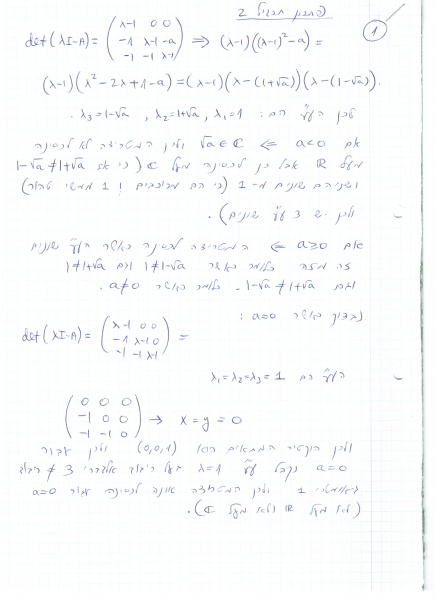 פתרון תרגיל 2
1
det(λI-A) = (λ-1 0 0 / -1 λ-1 -a / -1 -1 λ-1) ⇒ (λ-1)((λ-1)²-a) =
(λ-1)(λ²-2λ+1-a) = (λ-1)(λ-(1+√a))(λ-(1-√a)).
לכן הע"ע הם: λ₁=1, λ₂=1+√a, λ₃=1-√a.
אם a<0 ⇐ √a∈ℂ ולכן המטריצה לא לכסינה
מעל ℝ אבל כן לכסינה מעל ℂ (כי אז 1+√a≠1-√a
ושניהם שונים מ-1 (כי הם מרוכבים ו 1 ממשי טהור)
ולכן יש 3 ע"ע שונים).
אם a≥0 ⇐ המטריצה לכסינה כאשר הע"ע שונים
זה מזה כלומר כאשר 1≠1-√a וגם 1≠1+√a
וגם 1-√a≠1+√a. כלומר כאשר a≠0.
נבדוק כאשר a=0:
det(λI-A) = (λ-1 0 0 / -1 λ-1 0 / -1 -1 λ-1) =
הע"ע הם λ₁=λ₂=λ₃=1
(0 0 0 / -1 0 0 / -1 -1 0) → x=y=0
ולכן הוקטור המתאים הוא (0,0,1) ולכן עבור
a=0 נקבל ע"ע λ=1 בעל ריבוב אלגברי 3 ≠ ריבוב
גיאומטרי 1 ולכן המטריצה אינה לכסינה עבור a=0
(לא מעל ℝ ולא מעל ℂ).